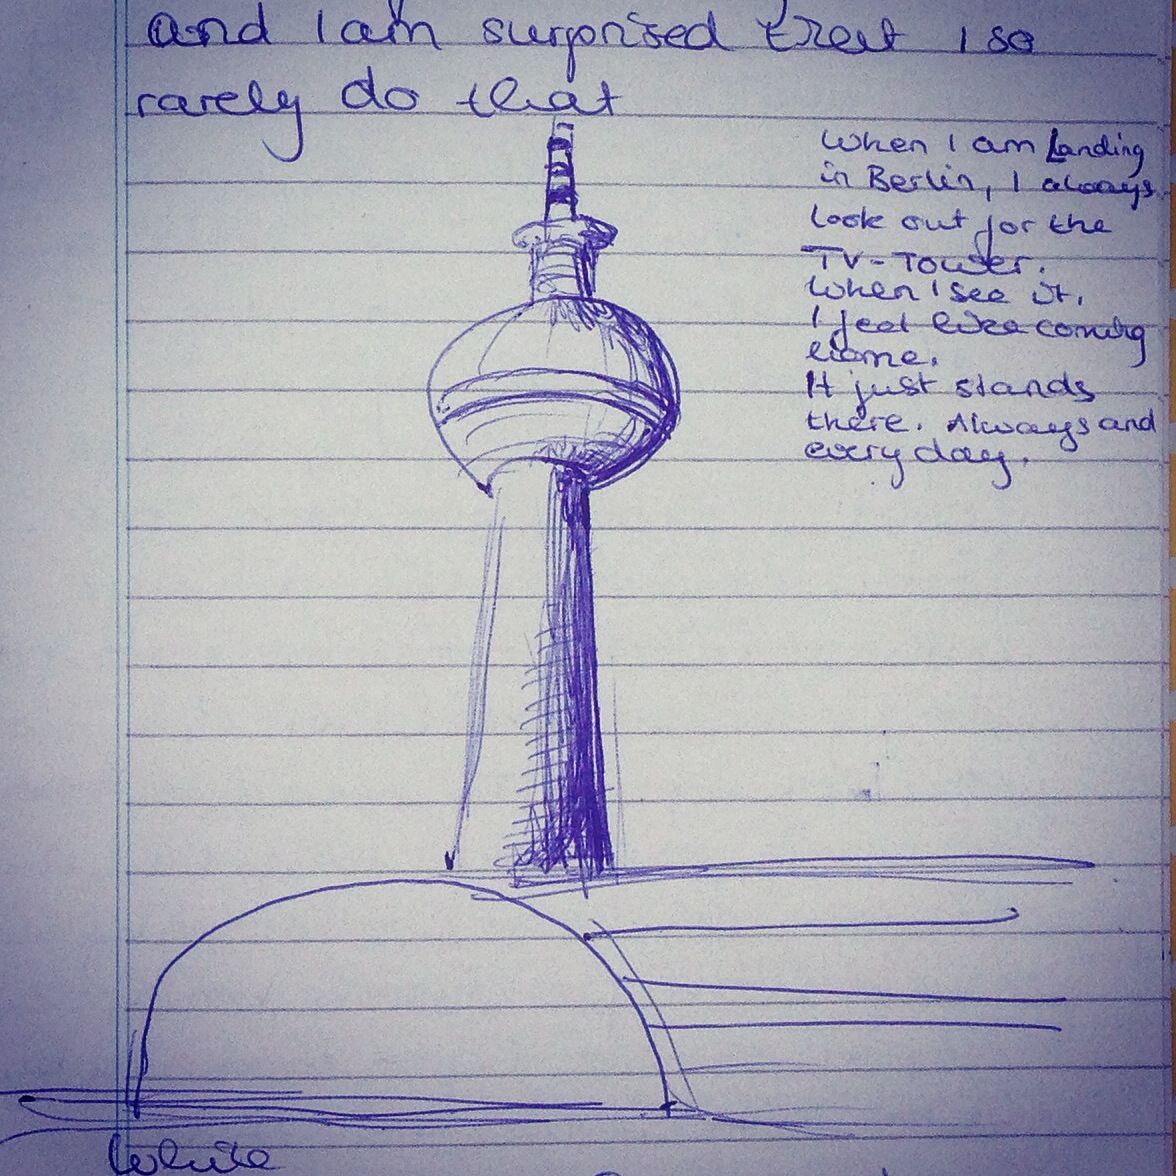 and I am surprised that I so
rarely do that
When I am Landing
in Berlin, I always
look out for the
TV-Tower.
When I see it,
I feel like coming
home.
It just stands
there. Always and
every day.
While